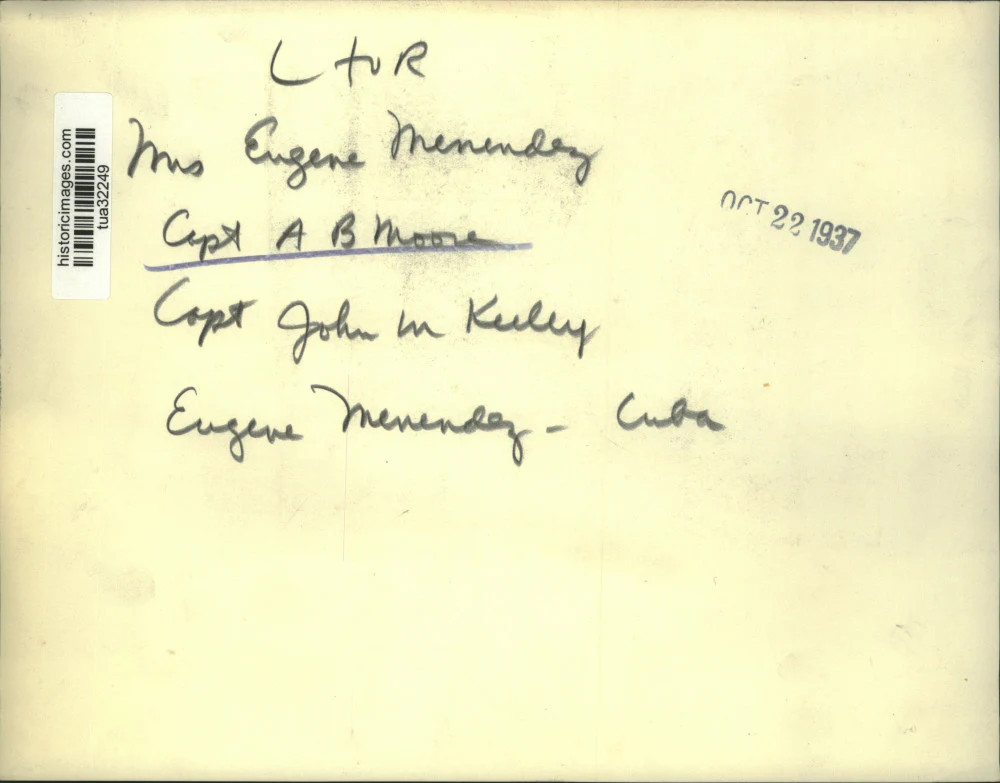 L to R
Mrs Eugene Menendez
Capt A B Moore
Capt John M Kelly
Eugene Menendez - Cuba
OCT 22 1937
historicimages.com
tua32249